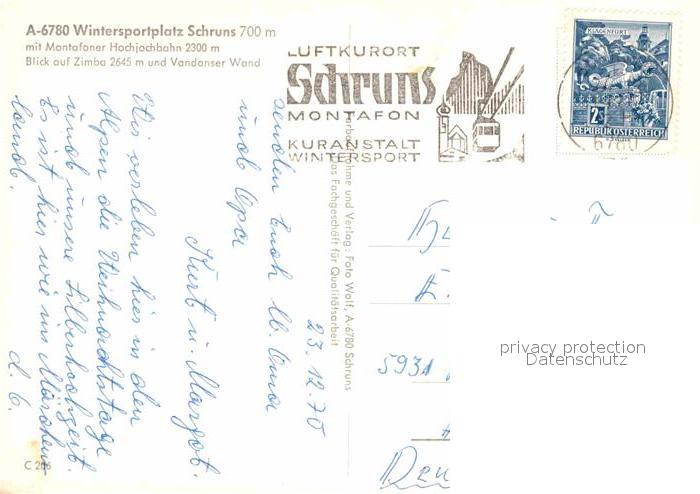 A-6780 Wintersportplatz Schruns 700 m
mit Montafoner Hochjochbahn 2300 m
Blick auf Zimba 2645 m und Vandanser Wand
LUFTKURORT
Schruns
MONTAFON
KURANSTALT
WINTERSPORT
KLAGENFURT
2S
REPUBLIK ÖSTERREICH
6780
23.12.70
Wir verleben hier in den
Alpen die Weihnachtstage
und unsere Silberhochzeit.
Es ist hier wie im Märchen-
land.
senden Euch lb. Oma
und Opa
Kurt u. Margot.
Aufnahme und Verlag: Foto Wolf, A-6780 Schruns
Das Fachgeschäft für Qualitätsarbeit
5931
C 206
privacy protection
Datenschutz